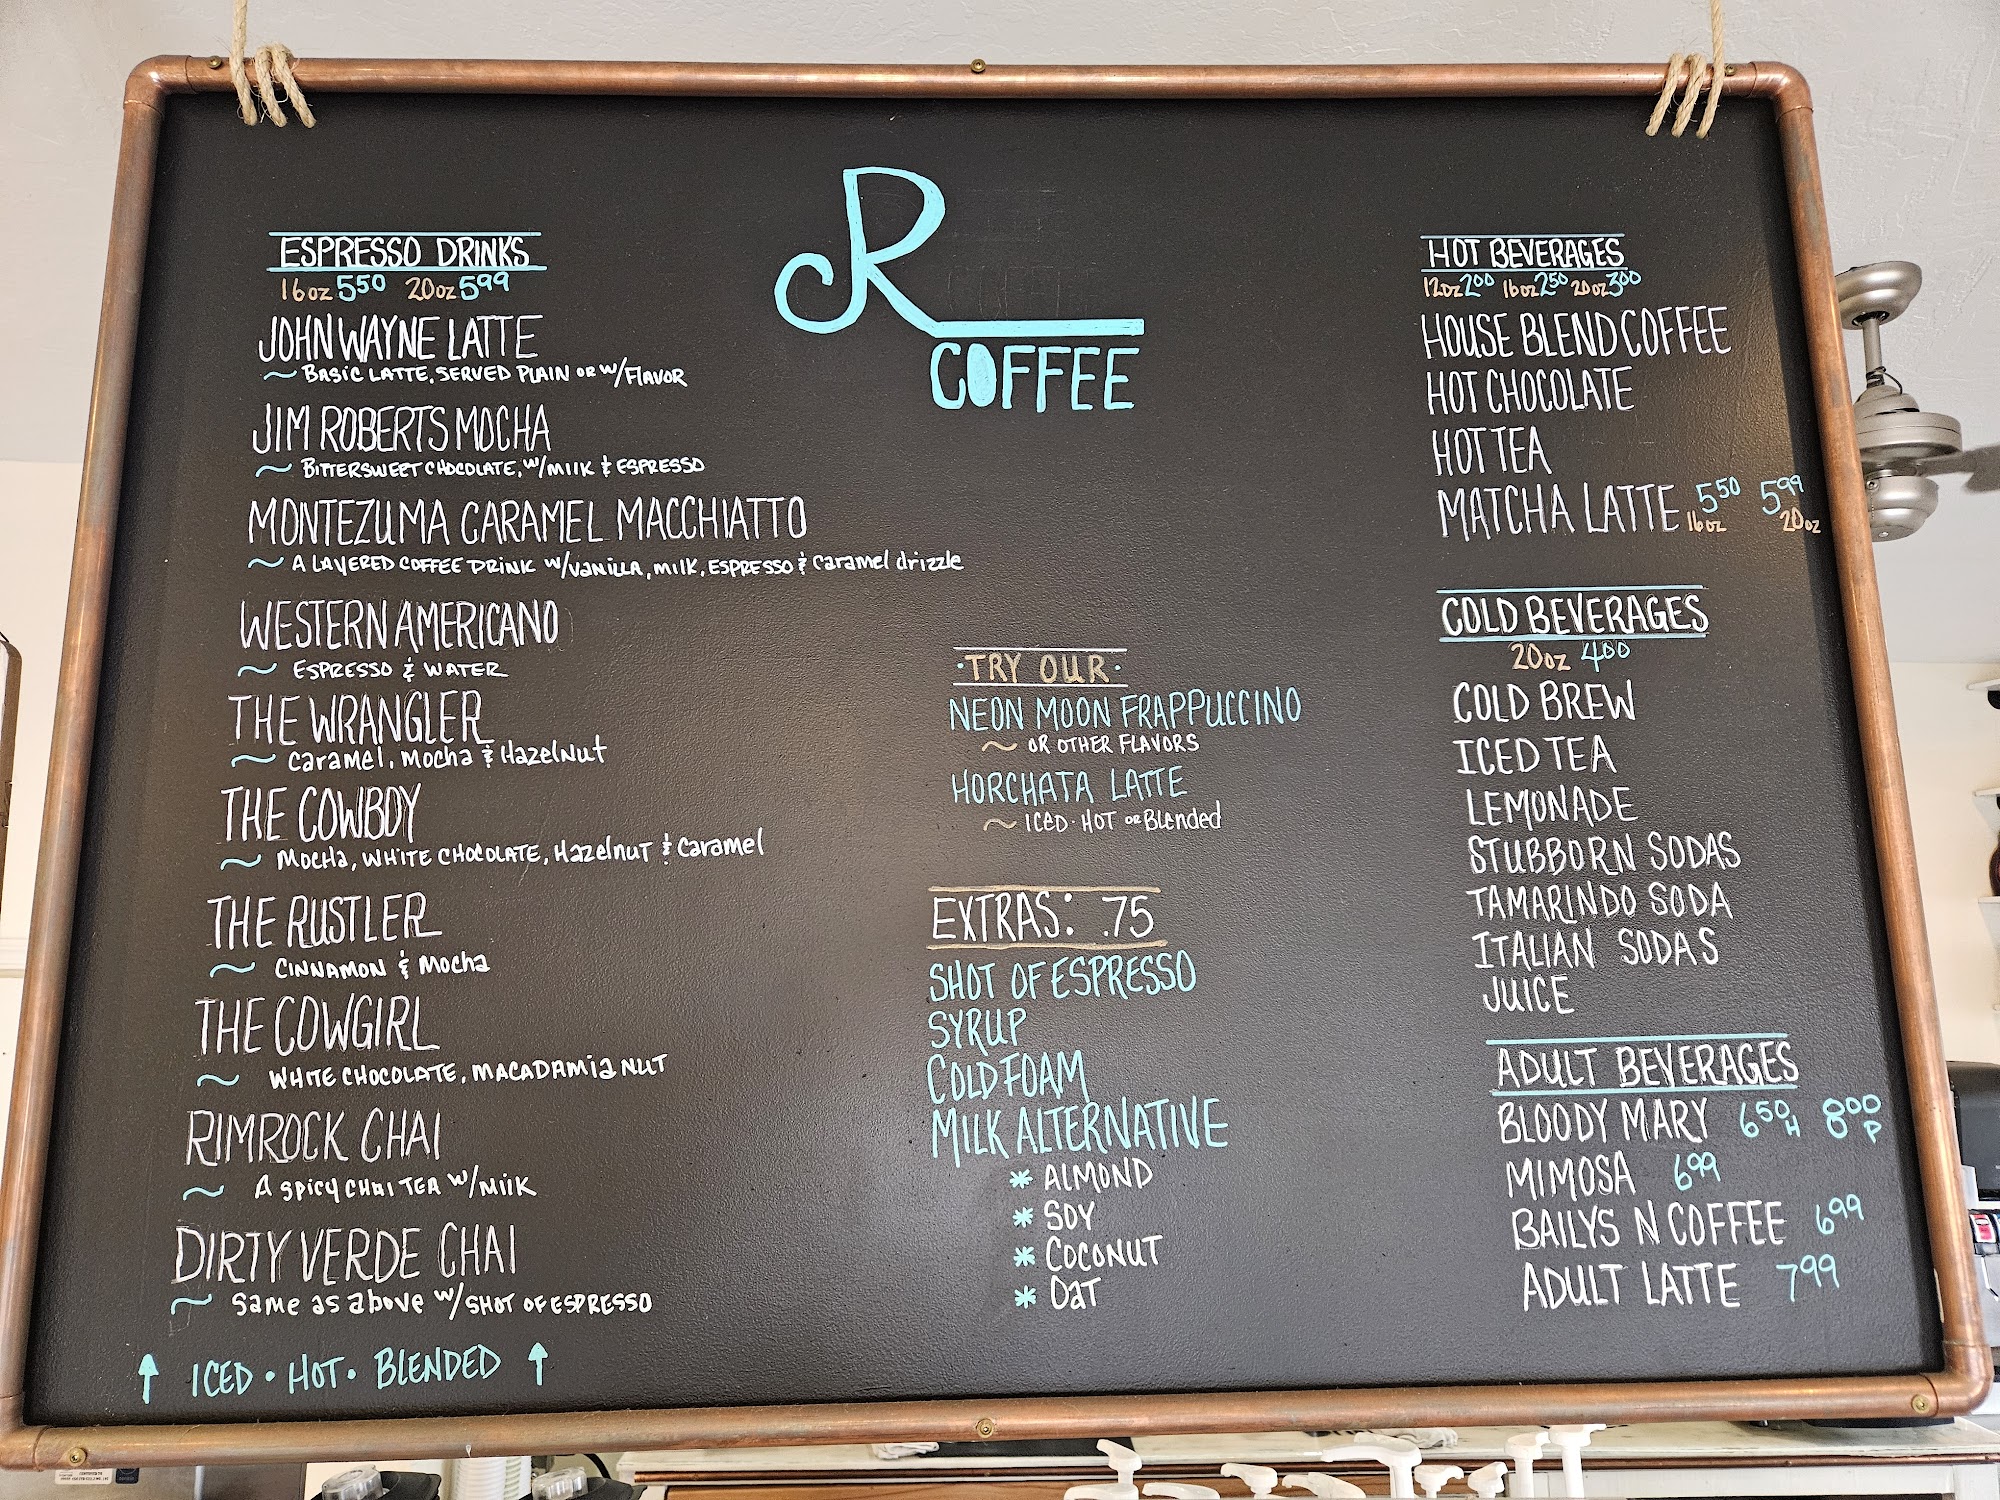 R
COFFEE
ESPRESSO DRINKS
16oz 5.50 20oz 5.99
JOHN WAYNE LATTE
~ BASIC LATTE, SERVED PLAIN OR W/FLAVOR
JIM ROBERTS MOCHA
~ BITTERSWEET CHOCOLATE, W/MILK & ESPRESSO
MONTEZUMA CARAMEL MACCHIATTO
~ A LAYERED COFFEE DRINK W/VANILLA, MILK, ESPRESSO & Caramel drizzle
WESTERN AMERICANO
~ ESPRESSO & WATER
THE WRANGLER
~ Caramel, Mocha & HazelNut
THE COWBOY
~ Mocha, WHITE CHOCOLATE, Hazelnut & Caramel
THE RUSTLER
~ CINNAMON & Mocha
THE COWGIRL
~ WHITE CHOCOLATE, MACADAMIA NUT
RIMROCK CHAI
~ A SPICY CHAI TEA W/MILK
DIRTY VERDE CHAI
~ Same as above W/SHOT OF ESPRESSO
↑ ICED · HOT · BLENDED ↑
· TRY OUR ·
NEON MOON FRAPPUCCINO
~ OR OTHER FLAVORS
HORCHATA LATTE
~ ICED · HOT OR Blended
EXTRAS: .75
SHOT OF ESPRESSO
SYRUP
COLD FOAM
MILK ALTERNATIVE
* ALMOND
* SOY
* COCONUT
* OAT
HOT BEVERAGES
12oz 2.00 16oz 2.50 20oz 3.00
HOUSE BLEND COFFEE
HOT CHOCOLATE
HOT TEA
MATCHA LATTE 5.50 16oz 5.99 20oz
COLD BEVERAGES
20oz 4.00
COLD BREW
ICED TEA
LEMONADE
STUBBORN SODAS
TAMARINDO SODA
ITALIAN SODAS
JUICE
ADULT BEVERAGES
BLOODY MARY 6.50 H 8.00 P
MIMOSA 6.99
BAILYS N COFFEE 6.99
ADULT LATTE 7.99